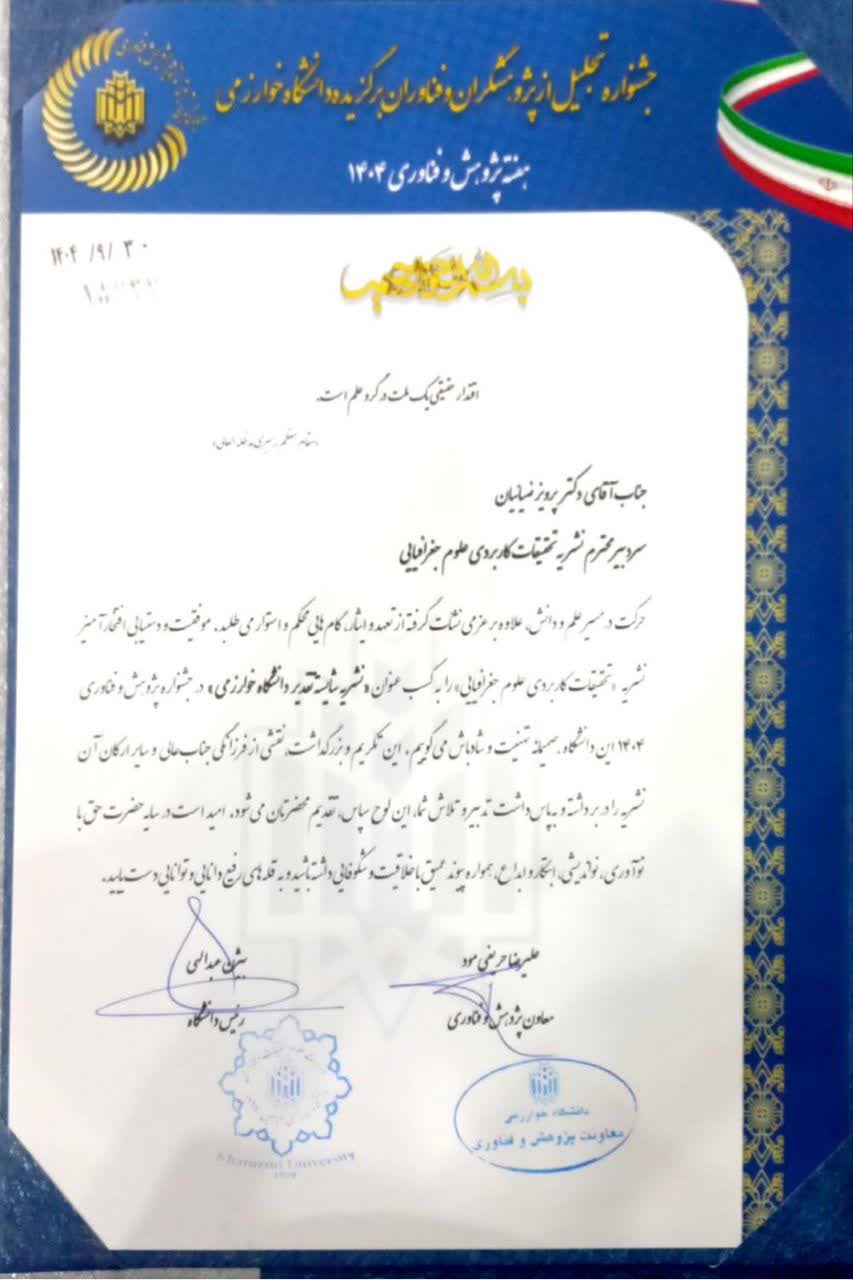 جشنواره تجلیل از پژوهشگران و فناوران برگزیده دانشگاه خوارزمی
هفته پژوهش و فناوری ۱۴۰۴
۱۴۰۴ /۹/ ۳۰
اقتدار حقیقی یک ملت در گرو علم است.
مقام معظم رهبری مدظله العالی
جناب آقای دکتر پرویز ضیائیان
سردبیر محترم نشریه تحقیقات کاربردی علوم جغرافیایی
حرکت در مسیر علم و دانش، علاوه بر عزمی نشات گرفته از تعهد و ایثار، گام هایی محکم و استوار می طلبد. موفقیت و دستیابی افتخار آمیز
نشریه «تحقیقات کاربردی علوم جغرافیایی» را به کسب عنوان «نشریه شایسته تقدیر دانشگاه خوارزمی» در جشنواره پژوهش و فناوری
۱۴۰۴ این دانشگاه صمیمانه تهنیت و شادباش می گوییم. این تکریم و بزرگداشت، نقشی از فرزانگی جناب عالی و سایر ارکان آن
نشریه را در بر داشته و به پاس داشت تدبیر و تلاش شما، این لوح سپاس، تقدیم محضرتان می شود. امید است در سایه حضرت حق با
نوآوری، نواندیشی، ابتکار و ابداع، همواره پیوند عمیق با خلاقیت و شکوفایی داشته باشید و به قله های رفیع دانایی و توانایی دست یابید.
علیرضا حریفی مود
معاون پژوهش و فناوری
بیژن عبدالهی
رئیس دانشگاه
دانشگاه خوارزمی
معاونت پژوهش و فناوری
University